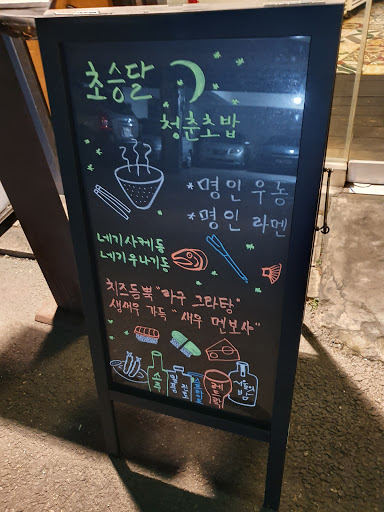 초승달
청춘초밥
*명인 우동
*명인 라멘
네기사케동
네기우나기동
치즈듬뿍 "라구 그라탕"
새우 가득 "새우 멘보샤"
소주
레드락
서울의 밤